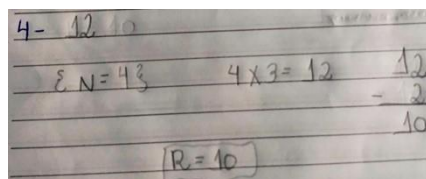 4- 12 10
{ N = 4 } 4 X 3 = 12 12
- 2
10
R = 10